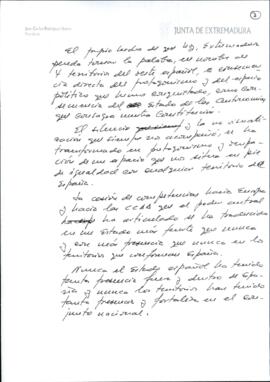 Juan Carlos Rodríguez Ibarra
Presidente
JUNTA DE EXTREMADURA
2
El propio hecho de que hoy, Extremadura
pueda tomar la palabra, en nombre de
4 territorios del oeste español, es consecuencia
directa del protagonismo y del espacio
político que hemos conquistado, como consecuencia
del Estado de las Autonomías
que consagra nuestra Constitución.
El silencio y la no visualización
que siempre nos acompañó, se ha
transformado en protagonismo y ocupación
de un espacio que nos sitúa en pie
de igualdad con cualquier territorio de
España.
La cesión de competencias hacia Europa
y hacia las CCAA que el poder central
ha articulado se ha traducido
en un Estado más fuerte que nunca
y con más presencia que nunca en los
territorios que conforman España.
Nunca el Estado español ha tenido
tanta presencia fuera y dentro de España
y nunca los territorios han tenido
tanta presencia y fortaleza en el conjunto
nacional.